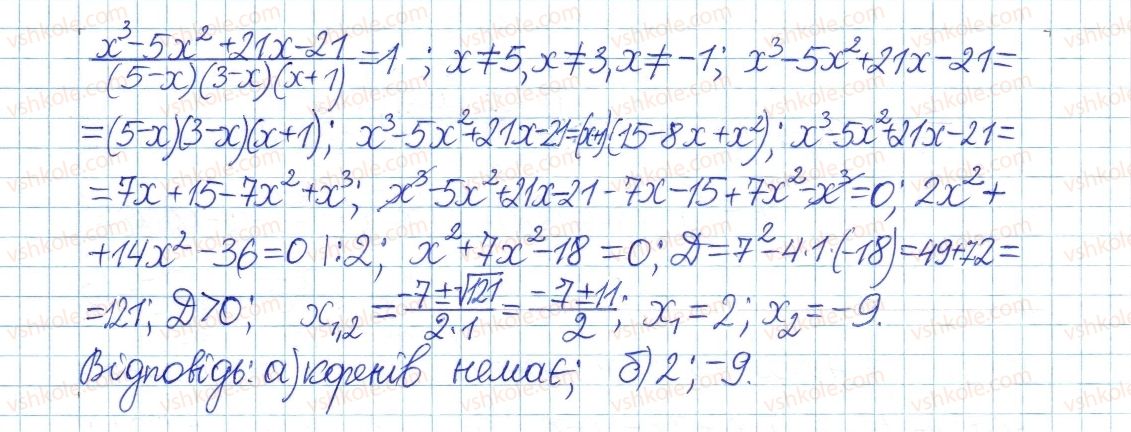 (x³-5x²+21x-21)/((5-x)(3-x)(x+1))=1 ; x≠5, x≠3, x≠-1; x³-5x²+21x-21=
=(5-x)(3-x)(x+1); x³-5x²+21x-21=(x+1)(15-8x+x²); x³-5x²+21x-21=
=7x+15-7x²+x³; x³-5x²+21x-21-7x-15+7x²-x³=0; 2x²+
+14x²-36=0 |:2; x²+7x²-18=0; Д=7²-4·1·(-18)=49+72=
=121; Д>0; x₁,₂=(-7±√121)/(2·1)=(-7±11)/2; x₁=2; x₂=-9.
Відповідь: а) коренів немає; б) 2; -9.